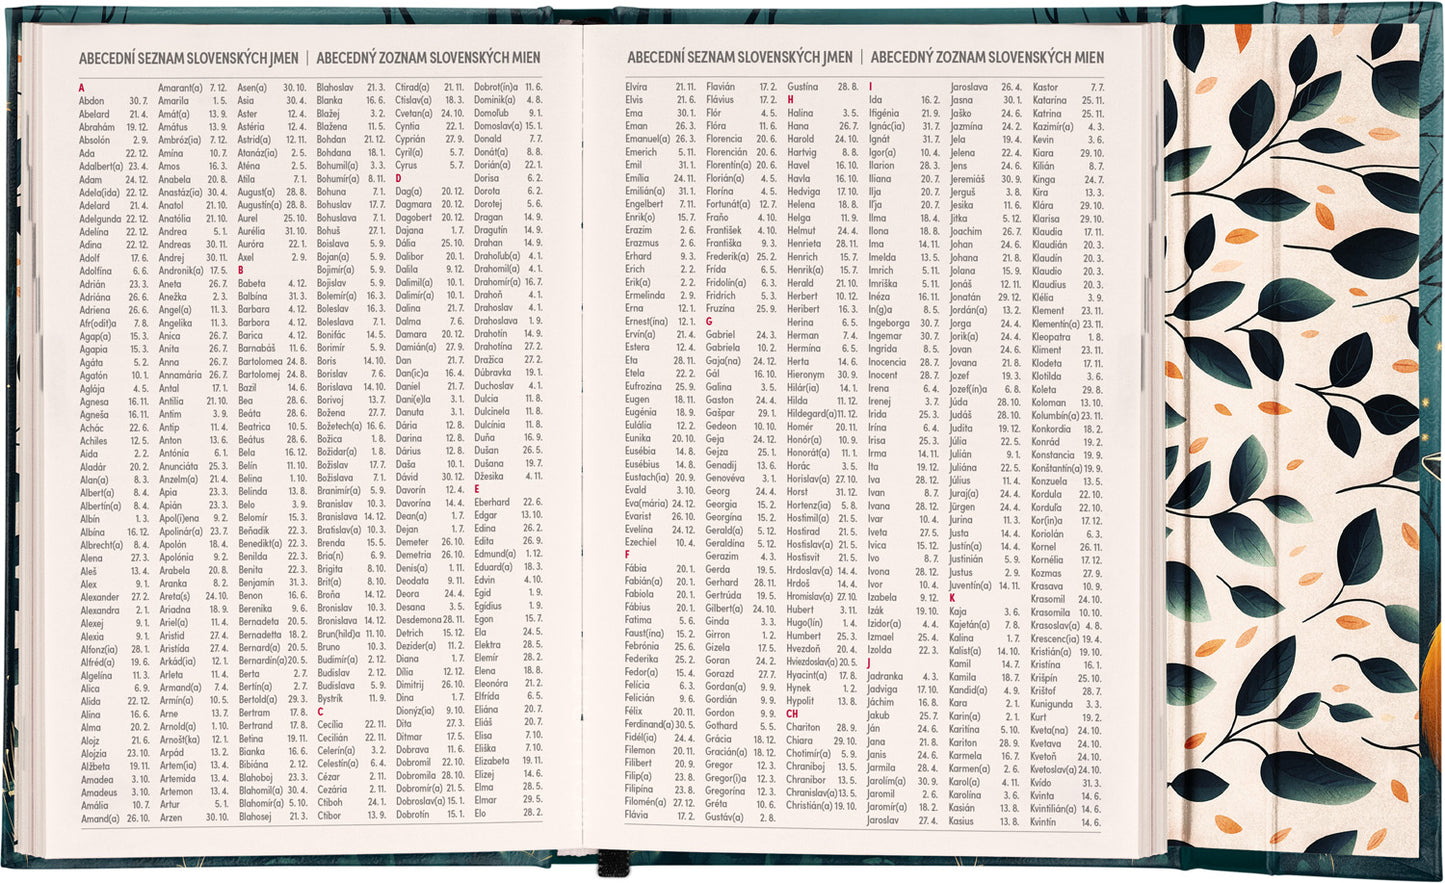 ABECEDNÍ SEZNAM SLOVENSKÝCH JMEN | ABECEDNÝ ZOZNAM SLOVENSKÝCH MIEN
A
Abdon 30. 7.
Abelard 21. 4.
Abrahám 19. 12.
Absolón 2. 9.
Ada 22. 12.
Adalbert(a) 23. 4.
Adam 24. 12.
Adela(ida) 22. 12.
Adelard 21. 4.
Adelgunda 22. 12.
Adelína 22. 12.
Adina 22. 12.
Adolf 17. 6.
Adolfína 6. 6.
Adrián 23. 3.
Adriána 26. 6.
Adriena 26. 6.
Afr(odit)a 7. 8.
Agap(a) 15. 3.
Agapia 15. 3.
Agáta 5. 2.
Agatón 10. 1.
Aglája 4. 5.
Agnesa 16. 11.
Agneša 16. 11.
Achác 22. 6.
Achiles 12. 5.
Aida 2. 2.
Aladár 20. 2.
Alan(a) 8. 3.
Albert(a) 8. 4.
Albertín(a) 8. 4.
Albín 1. 3.
Albína 16. 12.
Albrecht(a) 8. 4.
Alena 27. 3.
Aleš 13. 4.
Alex 9. 1.
Alexander 27. 2.
Alexandra 2. 1.
Alexej 9. 1.
Alexia 9. 1.
Alfonz(ia) 28. 1.
Alfréd(a) 19. 6.
Algelína 11. 3.
Alica 6. 9.
Alida 22. 12.
Alina 16. 6.
Alma 20. 2.
Alojz 21. 6.
Alojzia 23. 10.
Alžbeta 19. 11.
Amadea 3. 10.
Amadeus 3. 10.
Amália 10. 7.
Amand(a) 26. 10.
Amarant(a) 7. 12.
Amarila 1. 5.
Amát(a) 13. 9.
Amátus 13. 9.
Ambróz(ia) 7. 12.
Amína 10. 7.
Amos 16. 3.
Anabela 20. 8.
Anastáz(ia) 30. 4.
Anatol 21. 10.
Anatólia 21. 10.
Andrea 5. 1.
Andreas 30. 11.
Andrej 30. 11.
Andronik(a) 17. 5.
Aneta 26. 7.
Anežka 2. 3.
Angel(a) 11. 3.
Angelika 11. 3.
Anica 26. 7.
Anita 26. 7.
Anna 26. 7.
Annamária 26. 7.
Antal 17. 1.
Antília 21. 10.
Antim 3. 9.
Antip 11. 4.
Anton 13. 6.
Antónia 6. 1.
Anunciáta 25. 3.
Anzelm(a) 21. 4.
Apia 23. 3.
Apián 23. 3.
Apol(i)ena 9. 2.
Apolinár(a) 23. 7.
Apolón 18. 4.
Apolónia 9. 2.
Arabela 20. 8.
Aranka 8. 2.
Areta(s) 24. 10.
Ariadna 18. 9.
Ariel(a) 11. 4.
Aristid 27. 4.
Aristída 27. 4.
Arkád(ia) 12. 1.
Arleta 11. 4.
Armand(a) 7. 4.
Armín(a) 10. 5.
Arne 13. 7.
Arnold(a) 1. 10.
Arnošt(ka) 12. 1.
Arpád 13. 2.
Artem(ia) 13. 4.
Artemida 13. 4.
Artemon 13. 4.
Artur 5. 1.
Arzen 30. 10.
Asen(a) 30. 10.
Asia 30. 4.
Aster 12. 4.
Astéria 12. 4.
Astrid(a) 12. 11.
Atanáz(ia) 2. 5.
Aténa 2. 5.
Atila 7. 1.
August(a) 28. 8.
Augustín(a) 28. 8.
Aurel 25. 10.
Aurélia 31. 10.
Auróra 22. 1.
Axel 2. 9.
B
Babeta 4. 12.
Balbína 31. 3.
Barbara 4. 12.
Barbora 4. 12.
Barica 4. 12.
Barnabáš 11. 6.
Bartolomea 24. 8.
Bartolomej 24. 8.
Bazil 14. 6.
Bea 28. 6.
Beáta 28. 6.
Beatrica 10. 5.
Beátus 28. 6.
Bela 16. 12.
Belín 11. 10.
Belina 1. 10.
Belinda 13. 8.
Belo 3. 9.
Belomír 15. 3.
Beňadik 22. 3.
Benedikt(a) 22. 3.
Benilda 22. 3.
Benita 22. 3.
Benjamín 31. 3.
Benon 16. 6.
Berenika 9. 6.
Bernadeta 20. 5.
Bernadetta 18. 2.
Bernard(a) 20. 5.
Bernardín(a) 20. 5.
Berta 2. 7.
Bertín(a) 2. 7.
Bertold(a) 29. 3.
Bertram 17. 8.
Bertrand 17. 8.
Betina 19. 11.
Bianka 16. 6.
Bibiána 2. 12.
Blahoboj 23. 3.
Blahomil(a) 30. 4.
Blahomír(a) 5. 10.
Blahosej 21. 3.
Blahoslav 21. 3.
Blanka 16. 6.
Blažej 3. 2.
Blažena 11. 5.
Bohdan 21. 12.
Bohdana 18. 1.
Bohumil(a) 3. 3.
Bohumír(a) 8. 11.
Bohuna 7. 1.
Bohuslav 17. 7.
Bohuslava 7. 1.
Bohuš 27. 1.
Boislava 5. 9.
Bojan(a) 5. 9.
Bojimír(a) 5. 9.
Bojislav 5. 9.
Bolemír(a) 16. 3.
Boleslav 16. 3.
Boleslava 7. 1.
Bonifác 14. 5.
Borimír 5. 9.
Boris 14. 10.
Borislav 7. 6.
Borislava 14. 10.
Borivoj 13. 7.
Božena 27. 7.
Božetech(a) 16. 6.
Božica 1. 8.
Božidar(a) 1. 8.
Božislav 17. 7.
Božislava 7. 1.
Branimír(a) 5. 9.
Branislav 10. 3.
Branislava 14. 12.
Bratislav(a) 10. 3.
Brenda 15. 5.
Bria(n) 6. 9.
Brigita 8. 10.
Brit(a) 8. 10.
Broňa 14. 12.
Bronislav 10. 3.
Bronislava 14. 12.
Brun(hild)a 11. 10.
Bruno 10. 3.
Budimír(a) 2. 12.
Budislav 2. 12.
Budislava 5. 9.
Bystrík 11. 9.
C
Cecília 22. 11.
Cecilián 22. 11.
Celerín(a) 3. 2.
Celestín(a) 6. 4.
Cézar 2. 11.
Cezária 2. 11.
Ctiboh 24. 1.
Ctibor 13. 9.
Ctirad(a) 21. 11.
Ctislav(a) 18. 3.
Cvetan(a) 24. 10.
Cyntia 22. 1.
Cyprián 27. 9.
Cyril(a) 5. 7.
Cyrus 5. 7.
D
Dag(a) 20. 12.
Dagmara 20. 12.
Dagobert 20. 12.
Dajana 1. 7.
Dália 25. 10.
Dalibor 20. 1.
Dalila 9. 12.
Dalimil(a) 10. 1.
Dalimír(a) 10. 1.
Dalina 21. 7.
Dalma 7. 6.
Damara 20. 12.
Damián(a) 27. 9.
Dan 21. 7.
Dan(ic)a 16. 4.
Daniel 21. 7.
Dani(e)la 3. 1.
Danuta 3. 1.
Dária 12. 8.
Darina 12. 8.
Dárius 12. 8.
Daša 10. 1.
Dávid 30. 12.
Davorín 12. 4.
Davorína 14. 4.
Dean(a) 1. 7.
Dejan 1. 7.
Demeter 26. 10.
Demetria 26. 10.
Denis(a) 1. 11.
Deodata 9. 11.
Deora 24. 4.
Desana 3. 5.
Desdemona 28. 11.
Detrich 15. 12.
Dezider(a) 11. 2.
Diana 1. 7.
Dília 12. 12.
Dimitrij 26. 10.
Dina 1. 7.
Dionýz(ia) 9. 10.
Dita 27. 3.
Ditmar 17. 5.
Dobrava 11. 6.
Dobromil 22. 10.
Dobromila 28. 10.
Dobromír(a) 21. 5.
Dobroslav(a) 15. 1.
Dobrotín 15. 1.
Dobrot(ín)a 11. 6.
Dominik(a) 4. 8.
Domoľub 9. 1.
Domoslav(a) 15. 1.
Donald 7. 7.
Donát(a) 8. 8.
Dorián(a) 22. 1.
Dorisa 6. 2.
Dorota 6. 2.
Dorotej 5. 6.
Dragan 14. 9.
Dragutín 14. 9.
Drahan 14. 9.
Draholub(a) 4. 1.
Drahomil(a) 4. 1.
Drahomír(a) 16. 7.
Drahoň 4. 1.
Drahoslav 4. 1.
Drahoslava 1. 9.
Drahotín 14. 9.
Drahotína 27. 2.
Dražica 27. 2.
Dúbravka 19. 1.
Duchoslav 4. 1.
Dulcia 11. 8.
Dulcinela 11. 8.
Dulcínia 11. 8.
Duňa 16. 9.
Dušan 26. 5.
Dušana 19. 7.
Džesika 4. 11.
E
Eberhard 22. 6.
Edgar 13. 10.
Edina 26. 2.
Edita 26. 9.
Edmund(a) 1. 12.
Eduard(a) 18. 3.
Edvin 4. 10.
Egid 1. 9.
Egídius 1. 9.
Egon 15. 7.
Ela 24. 5.
Elektra 28. 5.
Elemír 28. 2.
Elena 18. 8.
Eleonóra 21. 2.
Elfrída 6. 5.
Eliána 20. 7.
Eliáš 20. 7.
Elisa 7. 10.
Eliška 7. 10.
Elizabeta 19. 11.
Elizej 14. 6.
Elma 28. 5.
Elmar 29. 5.
Elo 28. 2.
ABECEDNÍ SEZNAM SLOVENSKÝCH JMEN | ABECEDNÝ ZOZNAM SLOVENSKÝCH MIEN
Elvíra 21. 11.
Elvis 21. 6.
Ema 30. 1.
Eman 26. 3.
Emanuel(a) 26. 3.
Emerich 5. 11.
Emil 31. 1.
Emília 24. 11.
Emilián(a) 31. 1.
Engelbert 7. 11.
Enrik(o) 15. 7.
Erazim 2. 6.
Erazmus 2. 6.
Erhard 9. 3.
Erich 2. 2.
Erik(a) 2. 2.
Ermelinda 2. 9.
Erna 12. 1.
Ernest(ína) 12. 1.
Ervín(a) 21. 4.
Estera 12. 4.
Eta 28. 11.
Etela 22. 2.
Eufrozina 25. 9.
Eugen 18. 11.
Eugénia 18. 9.
Eulália 12. 2.
Eunika 20. 10.
Eusébia 14. 8.
Eusébius 14. 8.
Eustach(ia) 20. 9.
Evald 3. 10.
Eva(mária) 24. 12.
Evarist 26. 10.
Evelína 24. 12.
Ezechiel 10. 4.
F
Fábia 20. 1.
Fabián(a) 20. 1.
Fabiola 20. 1.
Fábius 20. 1.
Fatima 5. 6.
Faust(ína) 15. 2.
Febrónia 25. 6.
Federika 25. 2.
Fedor(a) 15. 4.
Felícia 6. 3.
Felicián 9. 6.
Félix 20. 11.
Ferdinand(a) 30. 5.
Fidél(ia) 24. 4.
Filemon 20. 11.
Filibert 20. 9.
Filip(a) 23. 8.
Filipína 23. 8.
Filomén(a) 27. 12.
Flávia 17. 2.
Flavián 17. 2.
Flávius 17. 2.
Flór 4. 5.
Flóra 11. 6.
Florencia 20. 6.
Florencián 20. 6.
Florentín(a) 20. 6.
Florián(a) 4. 5.
Florína 4. 5.
Fortunát(a) 12. 7.
Fraňo 4. 10.
František 4. 10.
Františka 9. 3.
Frederik(a) 25. 2.
Frída 6. 5.
Fridolín(a) 6. 3.
Fridrich 5. 3.
Fruzína 25. 9.
G
Gabriel 24. 3.
Gabriela 10. 2.
Gaja(na) 24. 12.
Gál 16. 10.
Galina 3. 5.
Gaston 24. 4.
Gašpar 29. 1.
Gedeon 10. 10.
Geja 24. 12.
Gejza 25. 1.
Genadij 13. 6.
Genovéva 3. 1.
Georg 24. 4.
Georgia 15. 2.
Georgína 15. 2.
Gerald(a) 5. 12.
Geraldína 5. 12.
Gerazim 4. 3.
Gerda 19. 5.
Gerhard 28. 11.
Gertrúda 19. 5.
Gilbert(a) 24. 10.
Ginda 3. 3.
Girron 1. 2.
Gizela 17. 5.
Goran 24. 2.
Gorazd 27. 7.
Gordan(a) 9. 9.
Gordián 9. 9.
Gordon 9. 9.
Gothard 5. 5.
Grácia 18. 12.
Gracián(a) 18. 12.
Gregor 12. 3.
Gregor(i)a 12. 3.
Gregorína 12. 3.
Gréta 10. 6.
Gustáv(a) 2. 8.
Gustína 28. 8.
H
Halina 3. 5.
Hana 26. 7.
Harold 24. 10.
Hartvig 8. 8.
Havel 16. 10.
Havla 16. 10.
Hedviga 17. 10.
Helena 18. 8.
Helga 11. 9.
Helmut 24. 4.
Henrieta 28. 11.
Henrich 15. 7.
Henrik(a) 15. 7.
Herald 21. 10.
Herbert 10. 12.
Heribert 16. 3.
Herina 6. 5.
Herman 7. 4.
Hermína 6. 5.
Herta 14. 6.
Hieronym 30. 9.
Hilár(ia) 14. 1.
Hilda 11. 12.
Hildegard(a) 11. 12.
Homér 20. 11.
Honór(a) 10. 9.
Honorát(a) 11. 1.
Horác 3. 5.
Horislav(a) 27. 10.
Horst 31. 12.
Hortenz(ia) 5. 8.
Hostimil(a) 21. 5.
Hostirad 21. 5.
Hostislav(a) 21. 5.
Hostisvit 21. 5.
Hrdoslav(a) 14. 4.
Hrdoš 14. 4.
Hromislav(a) 27. 10.
Hubert 3. 11.
Hugo(lín) 1. 4.
Humbert 25. 3.
Hvezdoň 20. 4.
Hviezdoslav(a) 20. 5.
Hyacint(a) 17. 8.
Hynek 1. 2.
Hypolit 13. 8.
CH
Chariton 28. 9.
Chiara 29. 10.
Chotimír(a) 5. 9.
Chraniboj 13. 5.
Chranibor 13. 5.
Chranislav(a) 13. 5.
Christián(a) 19. 10.
I
Ida 16. 2.
Ifigénia 21. 9.
Ignác(ia) 31. 7.
Ignát 31. 7.
Igor(a) 10. 4.
Ilarion 28. 3.
Iliana 20. 7.
Iľja 20. 7.
Iľja 20. 7.
Ilma 18. 4.
Ilona 18. 8.
Ima 14. 11.
Imelda 13. 5.
Imrich 5. 11.
Imriška 5. 11.
Inéza 16. 11.
In(g)a 8. 5.
Ingeborga 30. 7.
Ingemar 30. 7.
Ingrida 8. 5.
Inocencia 28. 7.
Inocent 28. 7.
Irena 6. 4.
Irenej 3. 7.
Irida 25. 3.
Irína 6. 4.
Irisa 25. 3.
Irma 14. 11.
Ita 19. 12.
Iva 28. 12.
Ivan 8. 7.
Ivana 28. 12.
Ivar 10. 4.
Iveta 27. 5.
Ivica 15. 12.
Ivo 8. 7.
Ivona 28. 12.
Ivor 10. 4.
Izabela 9. 12.
Izák 19. 10.
Izidor(a) 4. 4.
Izmael 25. 4.
Izolda 22. 3.
J
Jadranka 4. 3.
Jadviga 17. 10.
Jáchim 16. 8.
Jakub 25. 7.
Ján 24. 6.
Jana 21. 8.
Janis 24. 6.
Jarmila 28. 4.
Jarolím(a) 30. 9.
Jaromil 2. 6.
Jaromír(a) 18. 2.
Jaroslav 27. 4.
Jaroslava 26. 4.
Jasna 30. 1.
Jaško 24. 6.
Jazmína 24. 2.
Jela 19. 4.
Jelena 22. 4.
Jens 24. 6.
Jeremiáš 30. 9.
Jerguš 3. 8.
Jesika 11. 6.
Jitka 5. 12.
Joachim 26. 7.
Johan 24. 6.
Johana 21. 8.
Jolana 15. 9.
Jonáš 12. 11.
Jonatán 29. 12.
Jordán(a) 13. 2.
Jorga 24. 4.
Jorik(a) 24. 4.
Jovan 24. 6.
Jovana 21. 8.
Jozef 19. 3.
Jozef(ín)a 6. 8.
Júda 28. 10.
Judáš 28. 10.
Judita 19. 12.
Júlia 22. 5.
Julián 9. 1.
Juliána 22. 5.
Július 11. 4.
Juraj(a) 24. 4.
Jürgen 24. 4.
Jurina 11. 3.
Justa 14. 4.
Justín(a) 14. 4.
Justinián 5. 9.
Justus 2. 9.
Juventín(a) 14. 11.
K
Kaja 3. 6.
Kajetán(a) 7. 8.
Kalina 1. 7.
Kalist(a) 14. 10.
Kamil 14. 7.
Kamila 18. 7.
Kandid(a) 4. 9.
Kara 2. 1.
Karin(a) 2. 1.
Karitína 5. 10.
Kariton 28. 9.
Karmela 16. 7.
Karmen(a) 2. 6.
Karol(a) 4. 11.
Karolína 3. 6.
Kasián 13. 8.
Kasius 13. 8.
Kastor 7. 7.
Katarína 25. 11.
Katrina 25. 11.
Kazimír(a) 4. 3.
Kevin 3. 6.
Kiara 29. 10.
Kilián 8. 7.
Kinga 24. 7.
Kira 13. 3.
Klára 29. 10.
Klarisa 29. 10.
Klaudia 17. 11.
Klaudián 20. 3.
Klaudín 20. 3.
Klaudio 20. 3.
Klaudius 20. 3.
Klélia 3. 9.
Klement 23. 11.
Klementín(a) 23. 11.
Kleopatra 1. 8.
Kliment 23. 11.
Klodeta 17. 11.
Klotilda 3. 6.
Koleta 29. 8.
Koloman 13. 10.
Kolumbín(a) 23. 11.
Konkordia 18. 2.
Konrád 19. 2.
Konstancia 19. 9.
Konštantín(a) 19. 9.
Konzuela 13. 5.
Kordula 22. 10.
Korduľa 22. 10.
Kor(in)a 17. 12.
Koriolán 6. 3.
Kornel 26. 11.
Kornélia 17. 12.
Kozmas 27. 9.
Krasava 10. 9.
Krasomil 24. 10.
Krasomila 10. 10.
Krasoslav(a) 4. 8.
Krescenc(ia) 19. 4.
Kristián(a) 19. 10.
Kristína 16. 1.
Krišpín 25. 10.
Krištof 28. 7.
Kunigunda 3. 3.
Kurt 19. 2.
Kveta(na) 24. 10.
Kvetava 24. 10.
Kvetoň 24. 10.
Kvetoslav(a) 24. 10.
Kvído 31. 3.
Kvinta 14. 6.
Kvintilián(a) 14. 6.
Kvintín 14. 6.